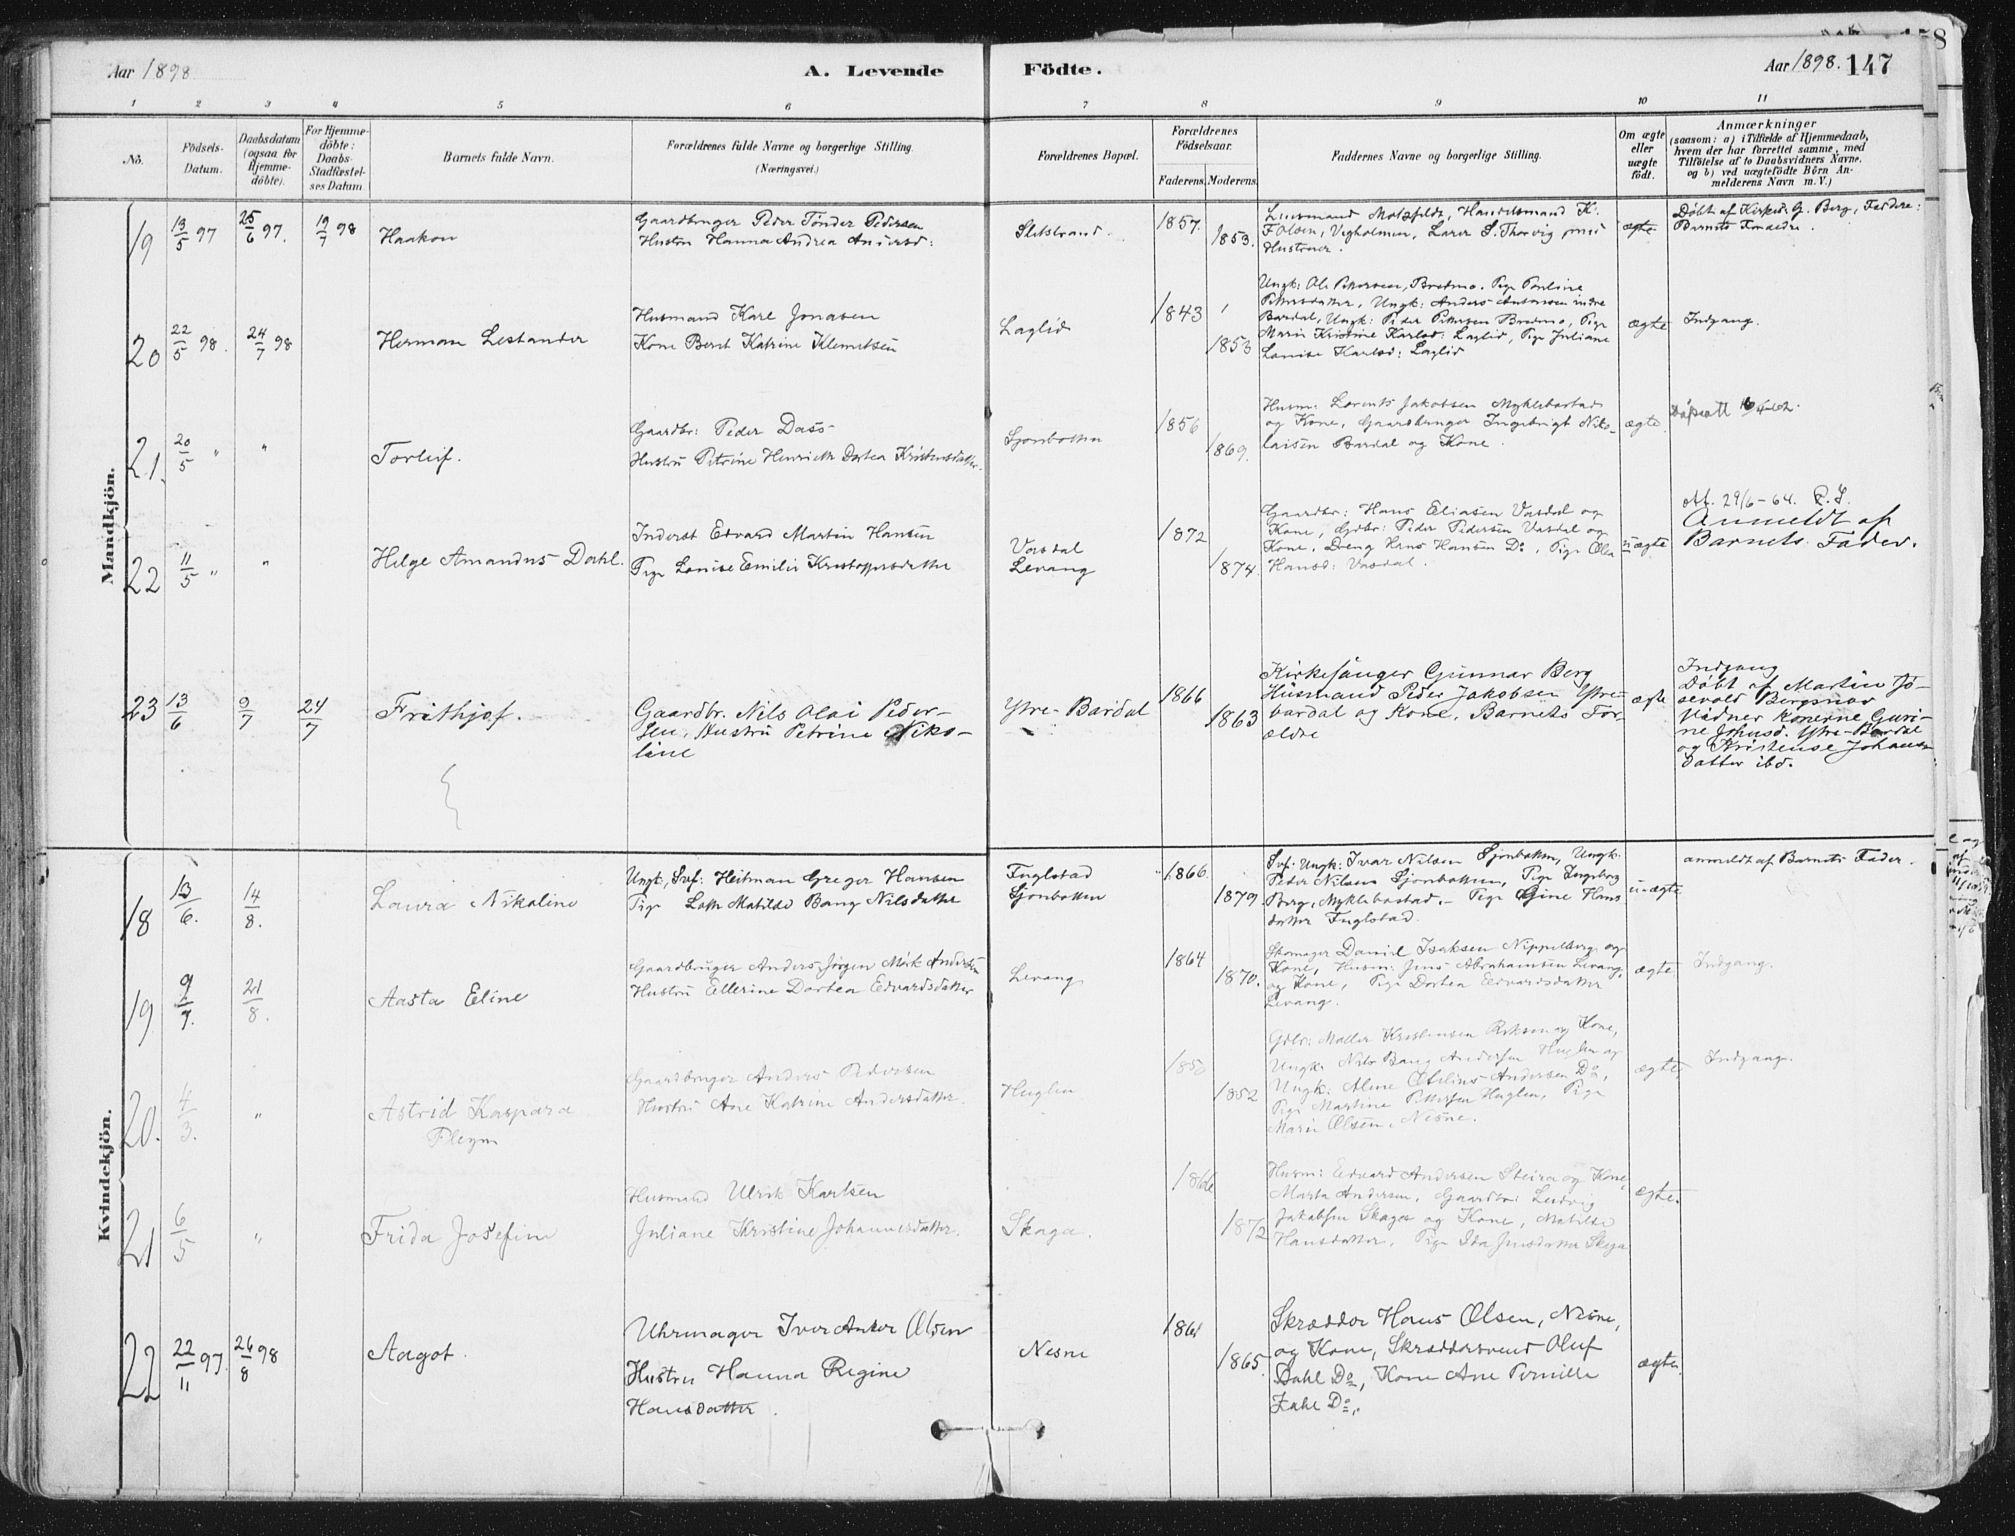 Aar 1898
A. Levende Födte.
Aar 1898. 147
158
1 2 3 4 5 6 7 8 9 10 11
No.
Födsels-Datum.
Daabsdatum (ogsaa for Hjemme-döbte).
For Hjemme-döbte: Daabs-Stadfæstel-ses Datum
Barnets fulde Navn.
Forældrenes fulde Navne og borgerlige Stilling. (Næringsvei.)
Forældrenes Bopæl.
Forældrenes Födselsaar.
Faderens. Moderens.
Faddernes Navne og borgerlige Stilling.
Om ægte eller uægte födt.
Anmærkninger
(saasom: a) i Tilfælde af Hjemmedaab,
hvem der har forrettet samme, med
Tilföielse af to Daabsvidners Navne.
og b) ved uægtefödte Börn An-
melderens Navn m. V.)
Mandkjön.
19 13/5 97 25/6 97. 19/7 98 Haakon
Gaardbruger Peder Tönder Pedersen
Hustru Hanna Andrea Andersd:
Slitstrand. 1857. 1853.
Lensmand Motzfeldt, Handelsmand K.
F. Olsen, Vegholmen, Lærer S. Thorvig med
Hustruer.
ægte
Döbt af Kirkes. G. Berg, Faddere:
Barnets Forældre.
20 22/5 98. 24/7 98 Herman Lestander
Husmand Karl Jonasen
Kone Berit Katrine Klemetsen
Laglid 1843 1853
Ungk: Ole Petersen, Bredmo. Pige Pauline
Petersdatter, Ungk: Anders Antonsen indre
Bardal, Ungk: Peder Petersen Bredmo, Pige
Marie Kristine Karlsd: Laglid, Pige Juliane
Lovise Karlsd: Laglid
ægte Indgang.
21. 20/5 " " Torleif.
Gaardbr: Peder Dass
Hustru Petrine Henriette Dortea Kristensdatter.
Sjonbotten 1856 1869.
Husm: Lorents Jakobsen Myklebostad
og Kone, Gaardbruger Ingebrigt Niko-
laisen Bardal og Kone.
ægte
22 11/5 " " Helge Amandus Dahl.
Inderst Edvard Martin Hansen
Pige Lovise Emilie Kristoffersdatter
Vasdal
Levang
1872 1874.
Gaardbr: Hans Eliasen Vasdal og
Kone, Gdbr: Peder Pedersen Vasdal og
Kone, Dreng Hans Hansen Do, Pige Ola
Hansd: Vasdal.
uægte
At. 29/6-64. P.S.
Anmeldt af
Barnets Fader.
23 13/6 9/7 24/7 Frithjof.
Gaardbr. Nils Olai Peder-
sen, Hustru Petrine Niko-
line
Ytre-Bardal 1866 1863
Kirkesanger Gunnar Berg
Husmand Peder Jakobsen Ytre-
bardal og Kone. Barnets For-
ældre
ægte
Indgang
Döbt af Martin Jo-
sevold Bergsnov
Vidner konerne Guri-
ne Johnsd. Ytre-Bardal
og Kristense Johans-
datter ibd.
Kvindekjön.
18 13/6. 14/8. Laura Nikoline
Ungk, Svf: Heitman Greger Hansen
Pige Lotte Matilde Bang Nilsdatter
Fuglstad
Sjonbotten
1866. 1879.
Svf: Ungk: Ivar Nilsen Sjonbotten, Ungk:
Peder Nilsen Sjonbotten, Pige Ingeborg
Berg, Myklebostad. - Pige Gine Hans
datter Fuglstad.
uægte
anmeldt af Barnets Fader.
19 9/7. 21/8. Aasta Eline
Gaardbruger Anders Jörgen Mörk Andersen
Hustru Ellerine Dortea Edvardsdatter
Levang 1864 1870.
Skomager Daniel Isaksen Nippelberg og
Kone, Husm: Jens Abrahamsen Levang
og Kone, Pige Dortea Edvardsdatter
Levang.
ægte Indgang.
20. 4/3. " Astrid Kaspara
Pleym
Gaardbruger Anders Pedersen
Hustru Ane Katrine Andersdatter.
Huglen 1850 1852
Gdbr: Møller Kristensen Riksen og Kone,
Ungk: Nils Bang Andersen Huglen og
Ungk: Aline Otelius Andersen Do,
Pige Martine Pettersen Huglen, Pige
Marie Olsen, Nesne.
ægte. Indgang.
21 6/5 " Frida Josefine
Husmand Ulrik Karlsen
Juliane Kristine Johannesdatter.
Skaga. 1866 1872
Husm: Edvard Andersen Steira og Kone,
Marta Andersen, Gaardbr: Ludvig
Jakobsen Skaga og Kone, Matilde
Hansdatter, Pige Ida Jensdatter Skaga
ægte.
22 22/11 97. 26/8 98 Aagot.
Uhrmager Iver Anker Olsen
Hustru Hanna Regine
Hansdatter.
Nesne 1861 1865.
Skrædder Hans Olsen, Nesne,
og Kone, Skræddersvend Oluf
Dahl Do, Kone Ane Pernille
Zahl Do.
ægte.